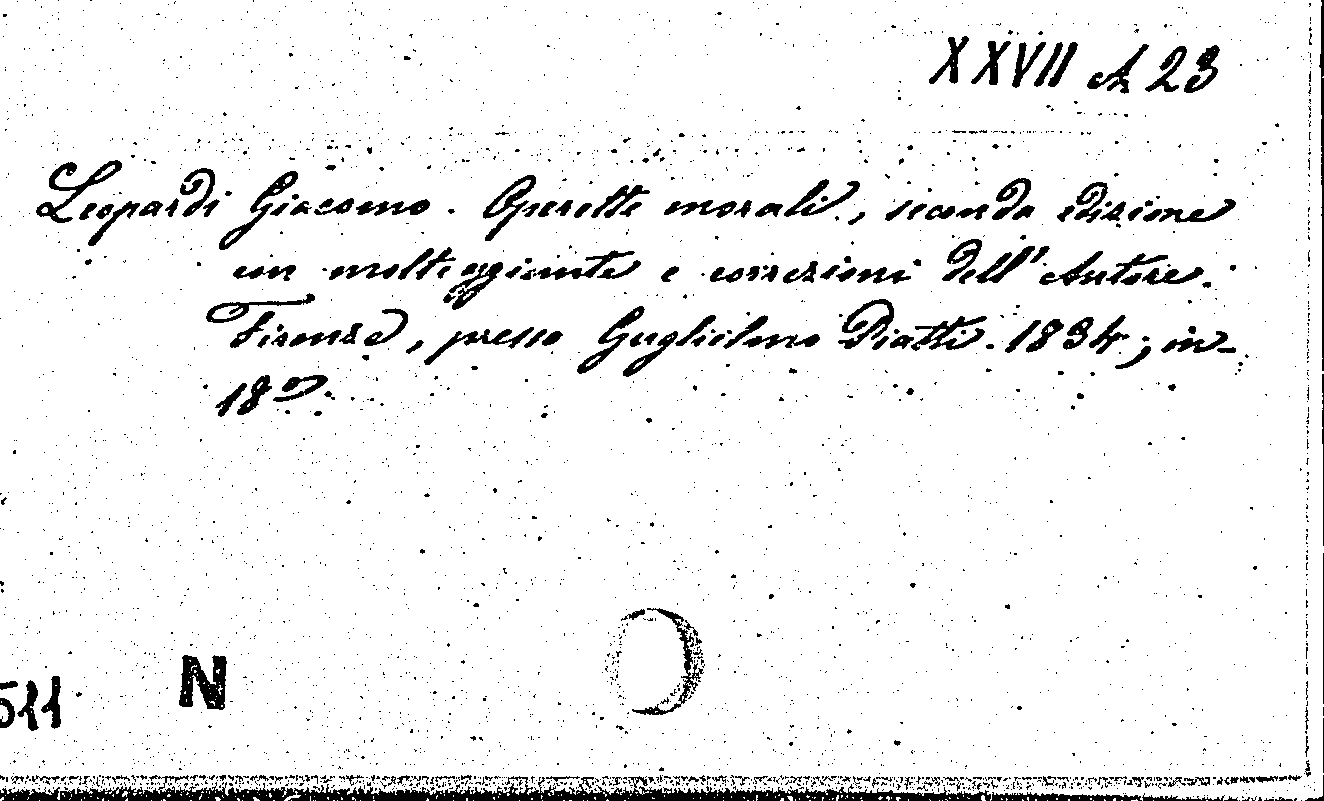 XXVII A 23
Leopardi Giacomo. Operette morali, seconda edizione
con molte aggiunte e correzioni dell' Autore.
Firenze, presso Guglielmo Piatti. 1834; in-
18°.
511 N